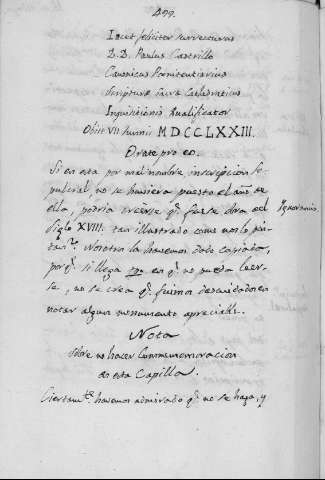 499.
Iacet feliciter surrecturus
D. D. Paulus Castrillo
Canonicus Poenitentiarius
Scripturæ sacræ Cathedraticus
Inquisitionis Qualificator
Obiit VII Iunii MDCCLXXIII.
Orate pro eo.
Si en esta por mal nombre inscripcion se-
pulcral, no se huviera puesto el año de
ella, podria creerse qe. fuese obra del
Siglo XVIII. tan ilustrado como nos lo pin-
tan. Nosotros la havemos dado copiada,
porqe. si llega en qe. no pueda leer-
se, no se crea qe. fuimos descuidados en
notar algun monumento apreciable.
Ignorancia.
Nota
sobre no hacer Conmemoracion
de esta Capilla.
Ciertamte. havemos admirado qe. no se haga, y